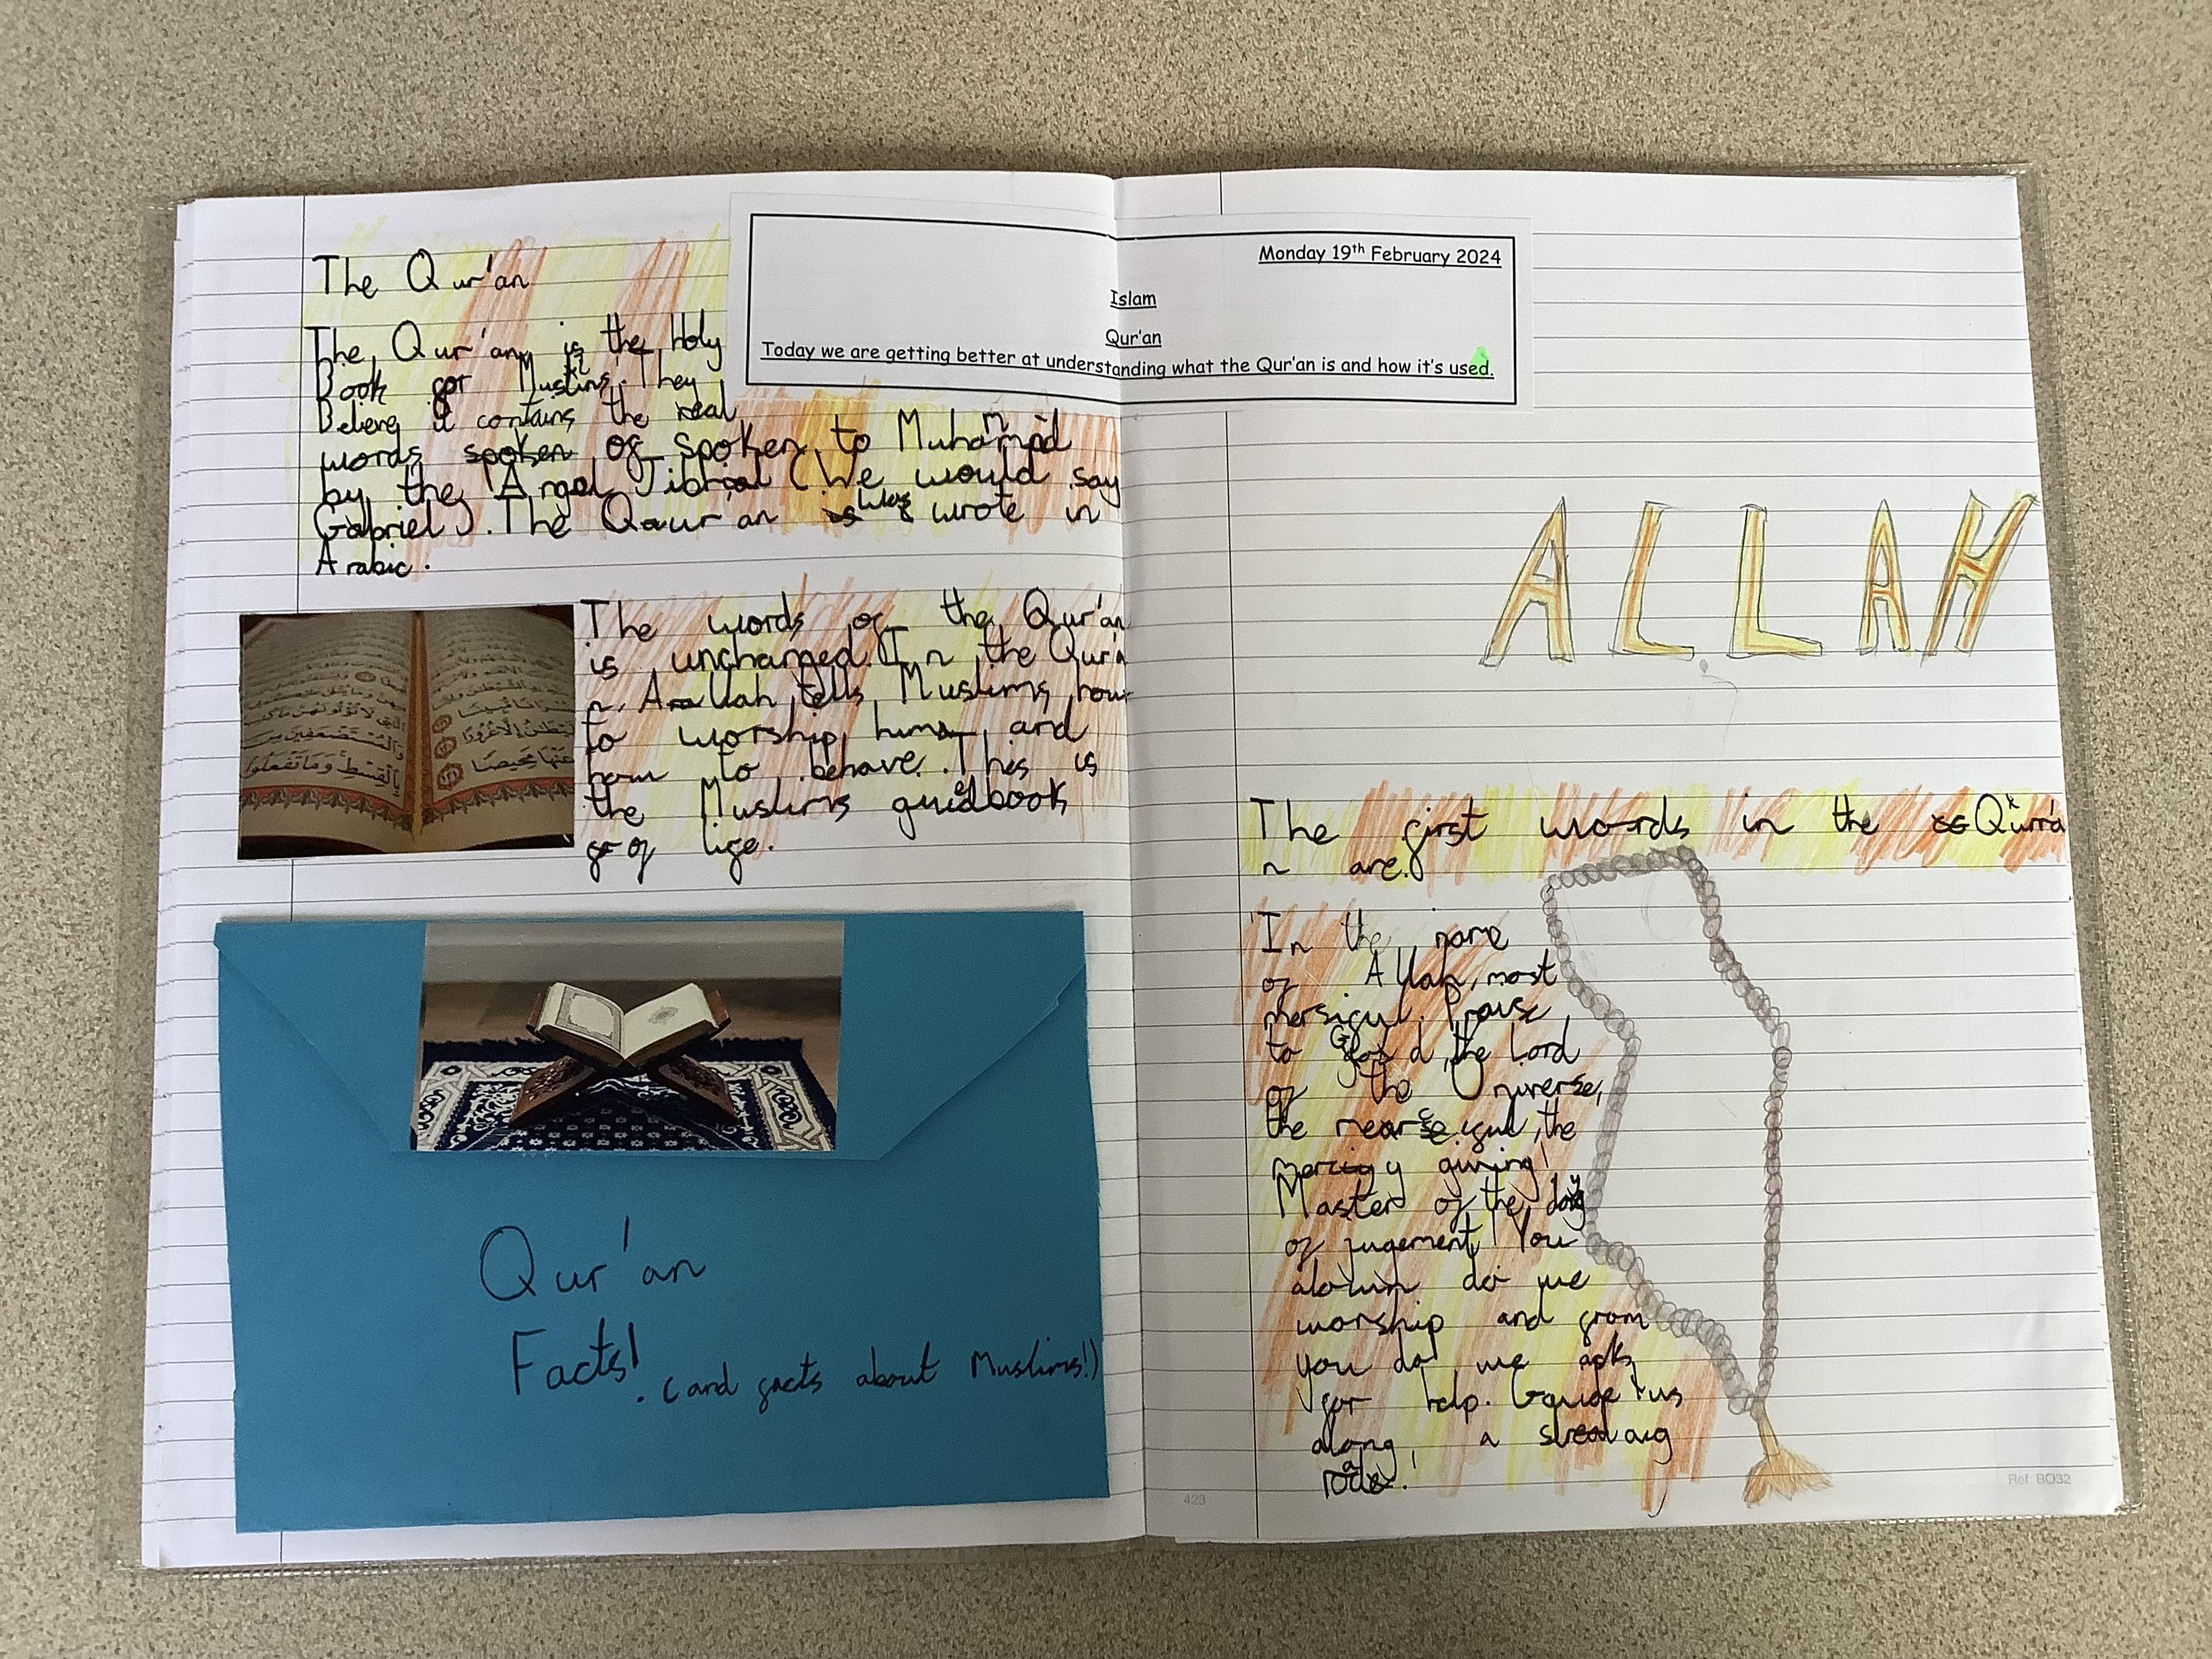 Monday 19th February 2024
Islam
Qur'an
Today we are getting better at understanding what the Qur'an is and how it's used.
The Qur'an
The Qur'an is the Holy
Book for Muslims. They
Believe it contains the real
words spoken of spoken to
by the Angel Jibrial (We would say
Gabriel). The was wrote in
Arabic.
The words of the Qur'an
is unchanged. In the Qur'a
n, Allah tells Muslims how
to worship him and
how to behave. This is
the Muslims guidebook
of life.
Qur'an
Facts!
(and facts about Muslims!)
ALLAH
The first words in the
n are.
In the name
of Allah, most
mersiful. Praise
to God, the Lord
of the Universe,
the the
giving!
Master of the day
of jugement! You
alown do we
worship and from
you do we ask
for help. Guide us
along, a
423
Ref: BO32